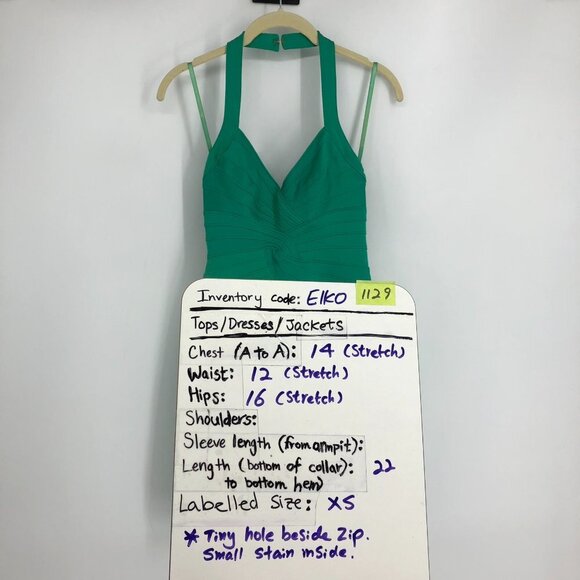 Inventory code: EIKO 1129
Tops/Dresses/Jackets
Chest (A to A): 14 (Stretch)
Waist: 12 (Stretch)
Hips: 16 (Stretch)
Shoulders:
Sleeve length (from armpit):
Length (bottom of collar): 22
to bottom hem)
Labelled Size: XS
* Tiny hole beside Zip.
Small Stain inside.